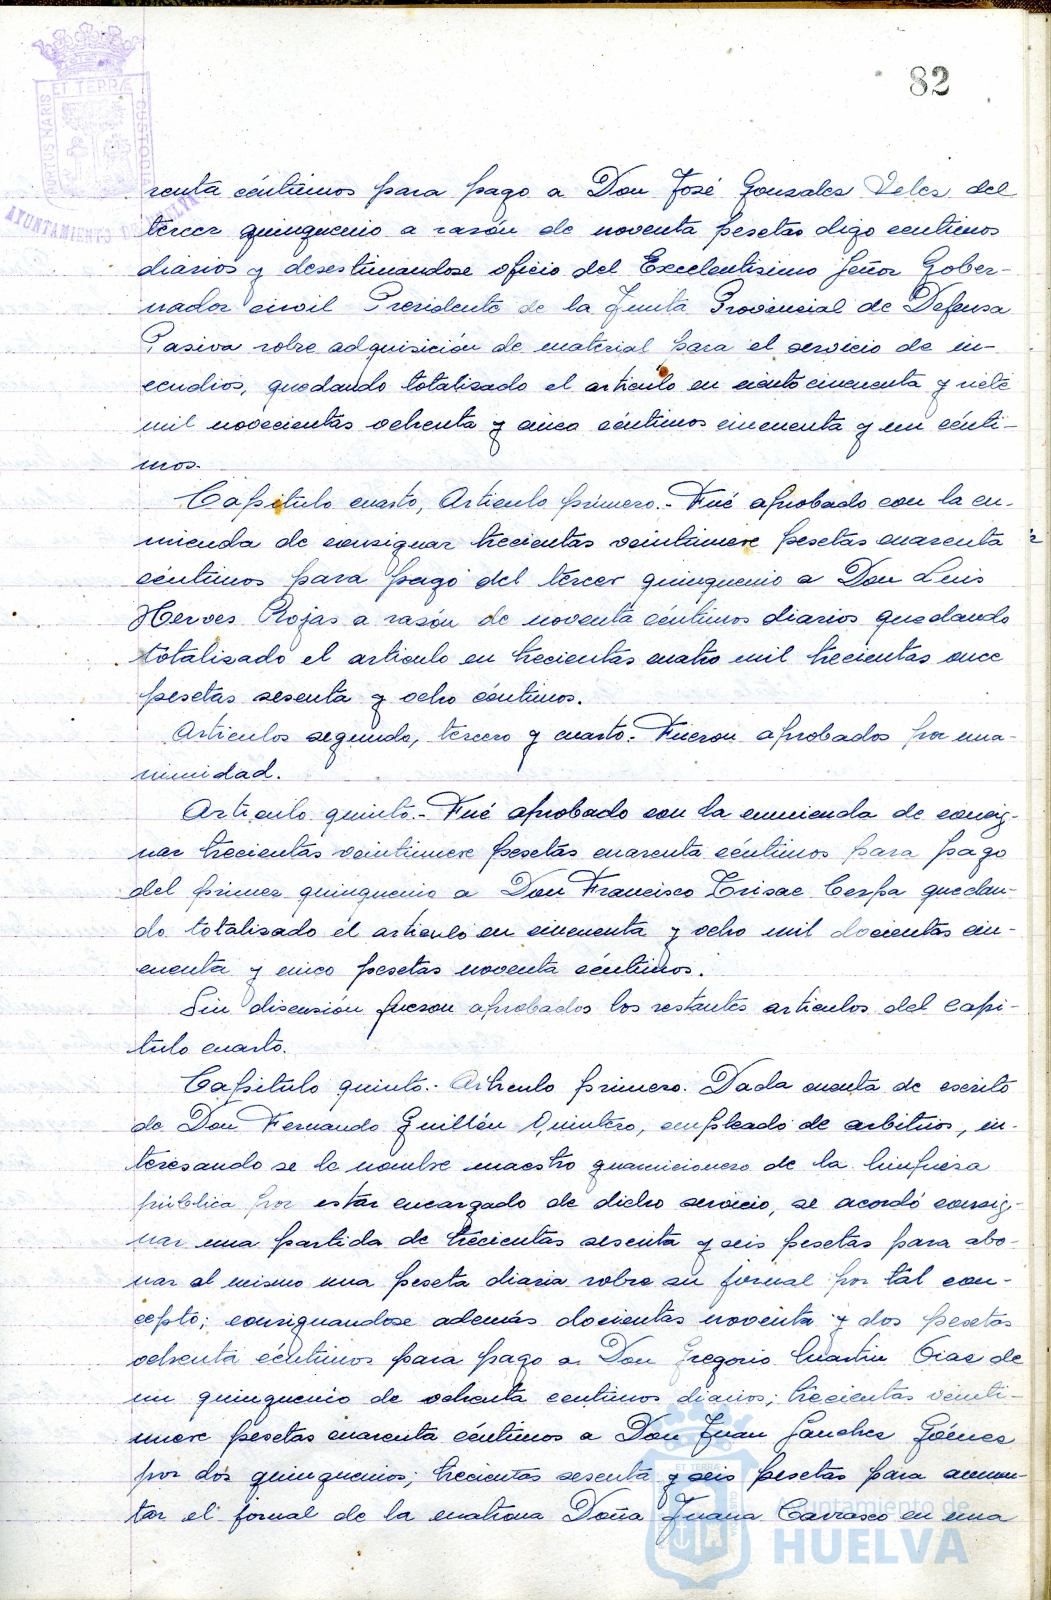 82
ET TERRÆ
AYUNTAMIENTO DE HUELVA
renta céntimos para pago a Don José Gonzales Veles del
tercer quinquenio a razón de noventa pesetas digo centimos
diarios y desestimandose oficio del Excelentisimo Señor Gober-
nador civil Presidente de la Junta Provincial de Defensa
Pasiva sobre adquisición de material para el servicio de in-
cendios, quedando totalisado el articulo en ciento cincuenta y siete
mil novecientas ochenta y cinco céntimos cincuenta y un cénti-
mos.
Capitulo cuarto, Articulo primero.- Fué aprobado con la en-
mienda de consignar trecientas veintinueve pesetas cuarenta
céntimos para pago del tercer quinquenio a Don Luis
Herves Rojas a rasón de noventa céntimos diarios quedando
totalisado el articulo en trecientas cuatro mil trecientas once
pesetas sesenta y ocho céntimos.
Articulos segundo, tercero y cuarto.- Fueron aprobados por una-
nimidad.
Articulo quinto.- Fué aprobado con la enmienda de consig-
nar trecientas veintinueve pesetas cuarenta céntimos para pago
del primer quinquenio a Don Francisco Trisac Cerpa quedan-
do totalisado el articulo en cincuenta y ocho mil docientas cin-
cuenta y cinco pesetas noventa céntimos.
Sin discusión fueron aprobados los restantes articulos del capi-
tulo cuarto.
Capitulo quinto.- Articulo primero. Dada cuenta de escrito
de Don Fernando Guillén Quintero, empleado de arbitrios, in-
teresando se le nombre maestro guarnicionero de la limpiesa
pública por estar encargado de dicho servicio, se acordó consig-
nar una partida de trecientas sesenta y seis pesetas para abo-
nar al mismo una peseta diaria sobre su jornal por tal con-
cepto; consignandose además docientas noventa y dos pesetas
ochenta céntimos para pago a Don Gregorio Martin Oias de
un quinquenio de ochenta centimos diarios; trecientas veinti-
nueve pesetas cuarenta céntimos a Don Juan Sanches Gómes
por dos quinquenios; trecientas sesenta y seis pesetas para aumen-
tar el jornal de la matrona Doña Juana Carrasco en una
Ayuntamiento de
HUELVA